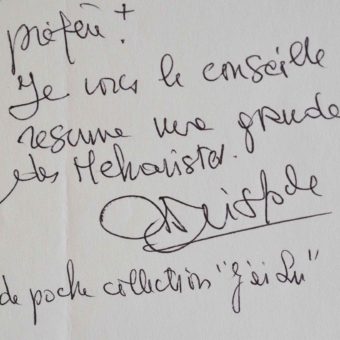 préféré!
Je vous le conseille
résume une grande
des Mehariste.
de poche collection "J'ai Lu"